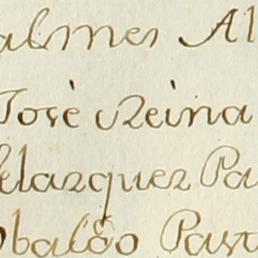 almes Al
Josè Reina
elazquez Pa
baldo Past